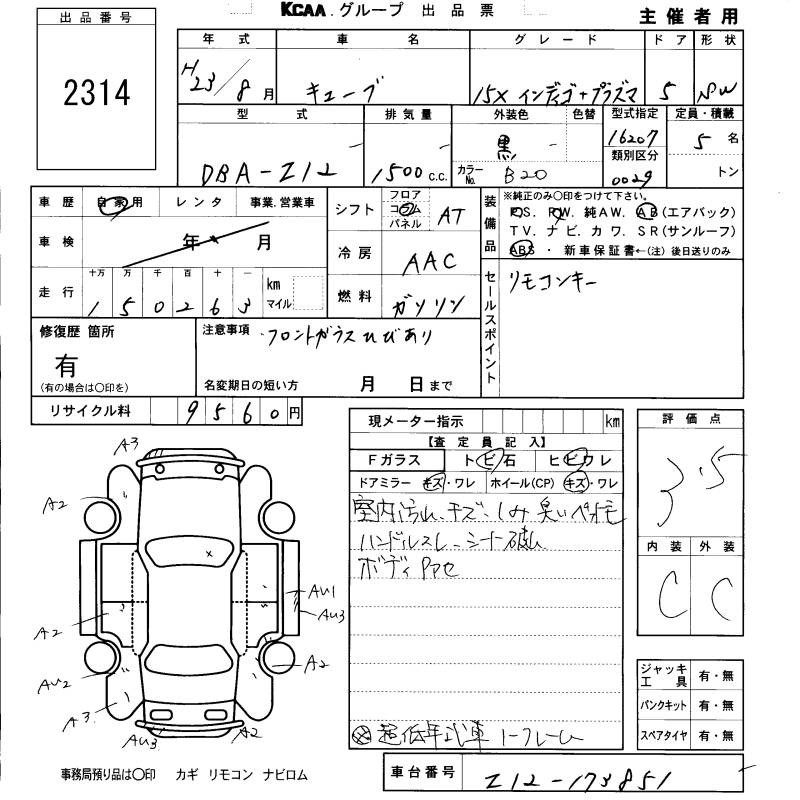 KCAA.グループ 出品票
主催者用
出品番号
2314
年式 車名 グレード ドア 形状
H23/8月 キューブ 15X インディゴ+プラズマ 5 SW
型式 排気量 外装色 色替 型式指定 定員・積載
DBA-Z12 1500 C.C. 黒 - 16207 5名
カラーNo. B20 類別区分 0029 トン
車歴 自家用 レンタ 事業.営業車
シフト フロア コラム パネル AT
装備品
※純正のみ○印をつけて下さい。
P.S. P.W. 純AW. AB(エアバック)
TV. ナビ. カワ. SR(サンルーフ)
ABS ・ 新車保証書←(注)後日送りのみ
車検 年 月
冷房 AAC
セールスポイント
リモコンキー
走行 十万 万 千 百 十 一 km マイル
1 5 0 2 6 3
燃料 ガソリン
修復歴 箇所
有
(有の場合は○印を)
注意事項 ・フロントガラスひびあり
名変期日の短い方 月 日まで
リサイクル料 9560円
現メーター指示 km
【査定員記入】
Fガラス トビ石 ヒビワレ
ドアミラー キズ・ワレ ホイール(CP) キズ・ワレ
室内汚れ、キズ、しみ 臭い ペット毛
ハンドルスレ シート破れ
ボディ
※超低年式車 ノークレーム
評価点
3.5
内装 外装
C C
ジャッキ工具 有・無
パンクキット 有・無
スペアタイヤ 有・無
A3
A2
AU1
AU3
A2
A2
AU2
A3
AU3
A2
事務局預り品は○印 カギ リモコン ナビロム
車台番号 Z12-173851